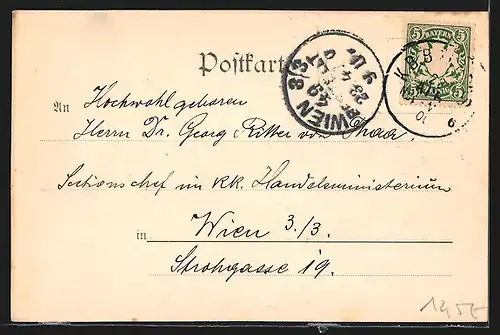 Postkarte
5 BAYERN 5
WIEN 3/3
An Hochwohlgeboren
Herrn Dr. Georg Ritter von Thaa
Sectionschef im KK. Handelsministerium
in Wien 3./3.
Strohgasse 19.